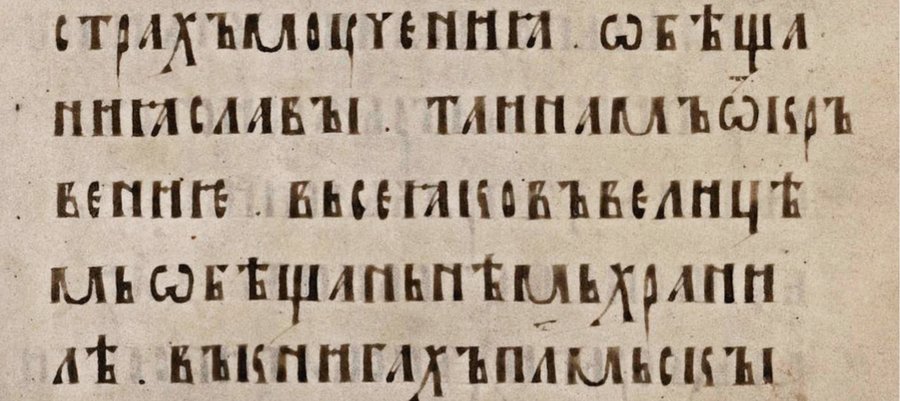 страхъмоцѹениꙗ · ѡбѣща
ниꙗславꙑ · таинамъѿкръ
вение · вьсеꙗковъвелицѣ
мьѡбѣщаньнѣмьхрани
лѣ · въкнигахъплмьскꙑ